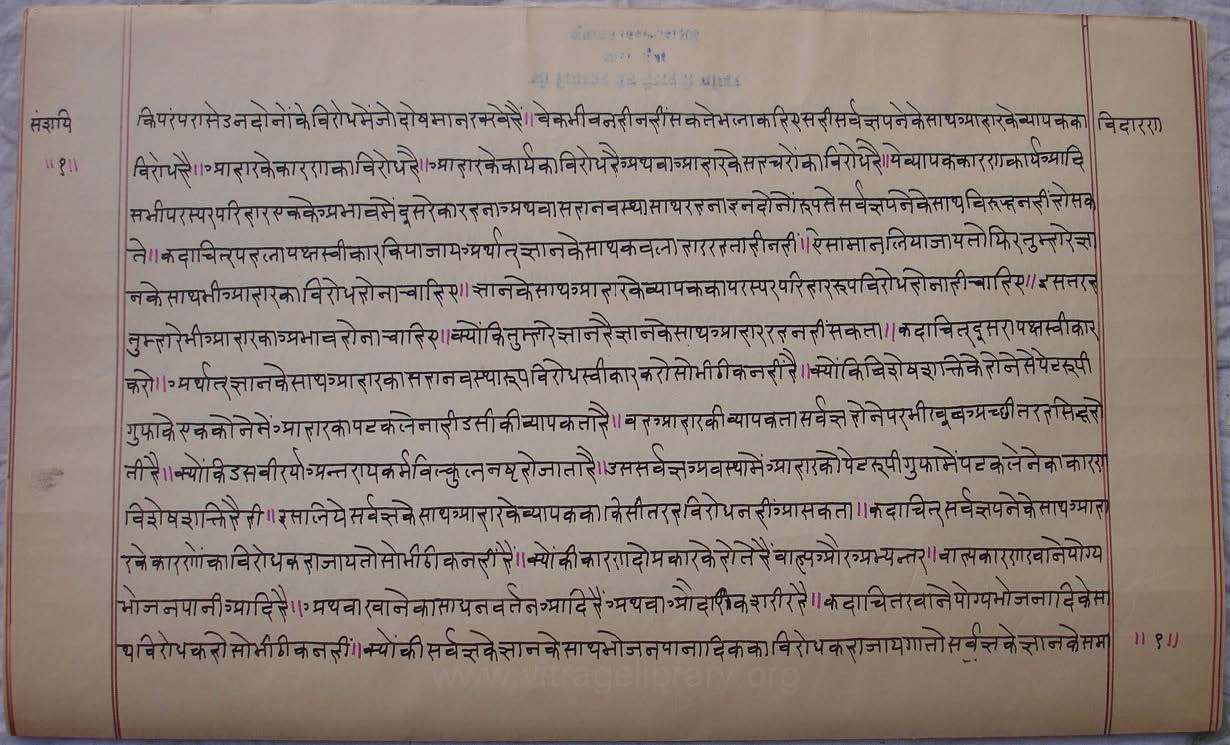 संशयि
किपरंपरासेउनदोनोंकेविरोधमेंजोदोषमानरक्खेहैं॥वेकभीबनहीनहींसकतेभलाकहिएसहीसर्वज्ञपनेकेसाथआहारकेव्यापकका
विदारण
॥१॥
विरोधहै॥आहारकेकारणकाविरोधहै॥आहारकेकार्यकाविरोधहैअथवाआहारकेसहचरोंकाविरोधहै॥येव्यापककारणकार्यआदि
सभीपरस्परपरिहारएककेअभावमेंदूसरेकारहनाअथवासहानवस्थासाथरहनाइनदोनोंरूपतेसर्वज्ञपनेकेसाथविरुद्धनहींहोसक
ते॥कदाचित्पहलापक्षस्वीकारकियाजायअर्थात्ज्ञानकेसाथकवलाहाररहताहीनहीं॥ऐसामानलियाजायतोफिरतुम्हारेज्ञा
नकेसाथभीआहारकाविरोधहोनाचाहिए॥ज्ञानकेसाथआहारकेव्यापककापरस्परपरिहाररूपविरोधहोनाहीचाहिए॥इसतरह
तुम्हारेभीआहारकाअभावहोनाचाहिए॥क्योंकितुम्हारेज्ञानहैज्ञानकेसाथआहाररहनहींसकता॥कदाचित्दूसरापक्षस्वीकार
करो॥अर्थात्ज्ञानकेसाथआहारकासहानवस्थारूपविरोधस्वीकारकरोसोभीठीकनहींहै॥क्योंकिविशेषशक्तिकेहोनेसेपेटरूपी
गुफाकेएककोनेमेंआहारकापटकलेनाहीउसीकीव्यापकताहै॥वहआहारकीव्यापकतासर्वज्ञहोनेपरभीखूबअच्छीतरहसिद्धहो
तीहै॥क्योंकिउसवीर्यांअन्तरायकर्मविल्कुलनष्टहोजाताहै॥उससर्वज्ञअवस्थामेंआहारकोपेटरूपीगुफामेंपटकलेनेकाकारण
विशेषशक्तिहैही॥इसालियेसर्वज्ञकेसाथआहारकेव्यापककाकिसीतरहविरोधनहींआसकता॥कदाचित्सर्वज्ञपनेकेसाथआहा
रकेकारणोंकाविरोधकहाजायतोसोभीठीकनहींहैं॥क्योंकीकारणदोप्रकारकेहोतेहैंवाह्यऔरअभ्यन्तर॥वाह्यकारणखानेयोग्य
भोजनपानीआदिहै॥अथवाखानेकासाधनवर्तनआदिहैंअथवाऔदारिकशरीरहै॥कदाचितखानेयोग्यभोजनादिकेसा
थविरोधकहोसोभीठीकनहीं॥क्योंकीसर्वज्ञकेज्ञानकेसाथभोजनपानादिककाविरोधकहाजायगातोसर्वज्ञकेज्ञानकेसमा
॥१॥
www.vitragelibrary.org